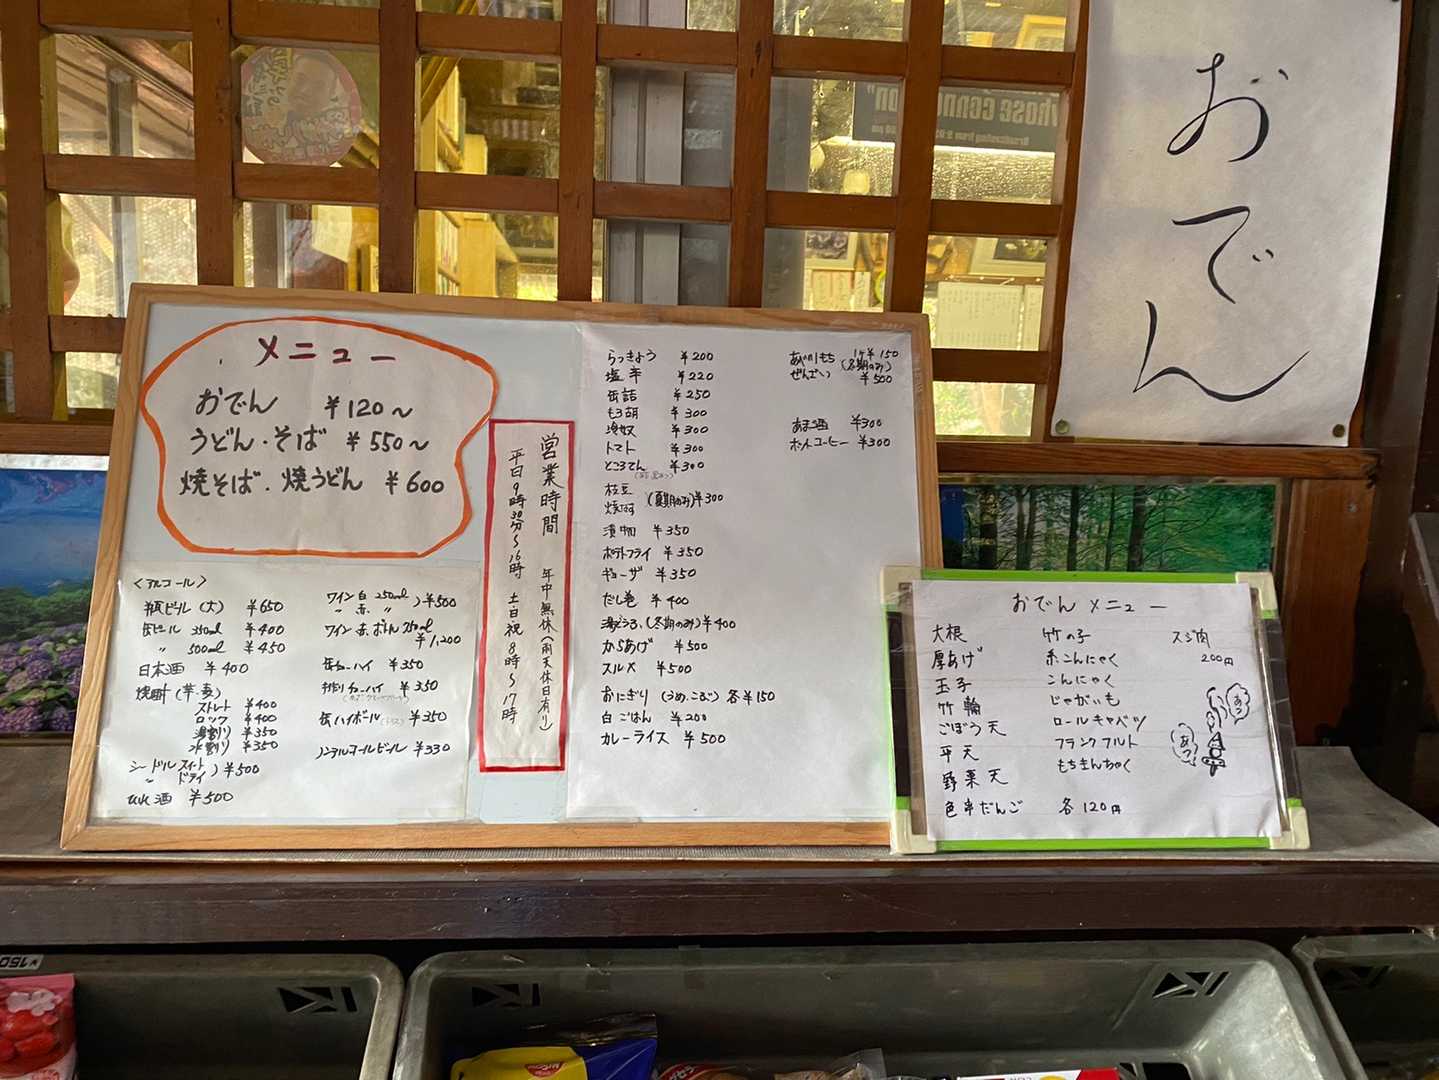 おでん
メニュー
おでん ¥120~
うどん・そば ¥550~
焼そば・焼うどん ¥600
営業時間 年中無休(雨天休日有り)
平日9時30分~16時 土・日・祝 8時~17時
<アルコール>
瓶ビール(大) ¥650
缶ビール 350ml ¥400
〃 500ml ¥450
日本酒 ¥400
焼酎(芋・麦)
ストレート ¥400
ロック ¥400
湯割り ¥350
水割り ¥350
シードル スイート
〃 ドライ )¥500
¥500
ワイン 白 250ml
〃 赤 〃 )¥500
ワイン 赤 ボトル 750ml
¥1,200
缶チューハイ ¥350
¥350
缶ハイボール ¥350
ノンアルコールビール ¥330
らっきょう ¥200
塩辛 ¥220
缶詰 ¥250
もろ胡 ¥300
冷奴 ¥300
トマト ¥300
ところてん ¥300
枝豆
焼なす (夏期のみ)¥300
漬物 ¥350
ポテトフライ ¥350
ギョーザ ¥350
だし巻 ¥400
湯どうふ(冬期のみ)¥400
からあげ ¥500
スルメ ¥500
おにぎり(うめ、こぶ)各¥150
白ごはん ¥200
カレーライス ¥500
1ケ¥150
(冬期のみ)
ぜんざい ¥500
あま酒 ¥300
ホットコーヒー ¥300
おでんメニュー
大根
厚あげ
玉子
竹輪
ごぼう天
平天
野菜天
色串だんご
竹の子
糸こんにゃく
こんにゃく
じゃがいも
ロールキャベツ
フランクフルト
もちきんちゃく
各120円
スジ肉
200円
あつ
あつ
¥150